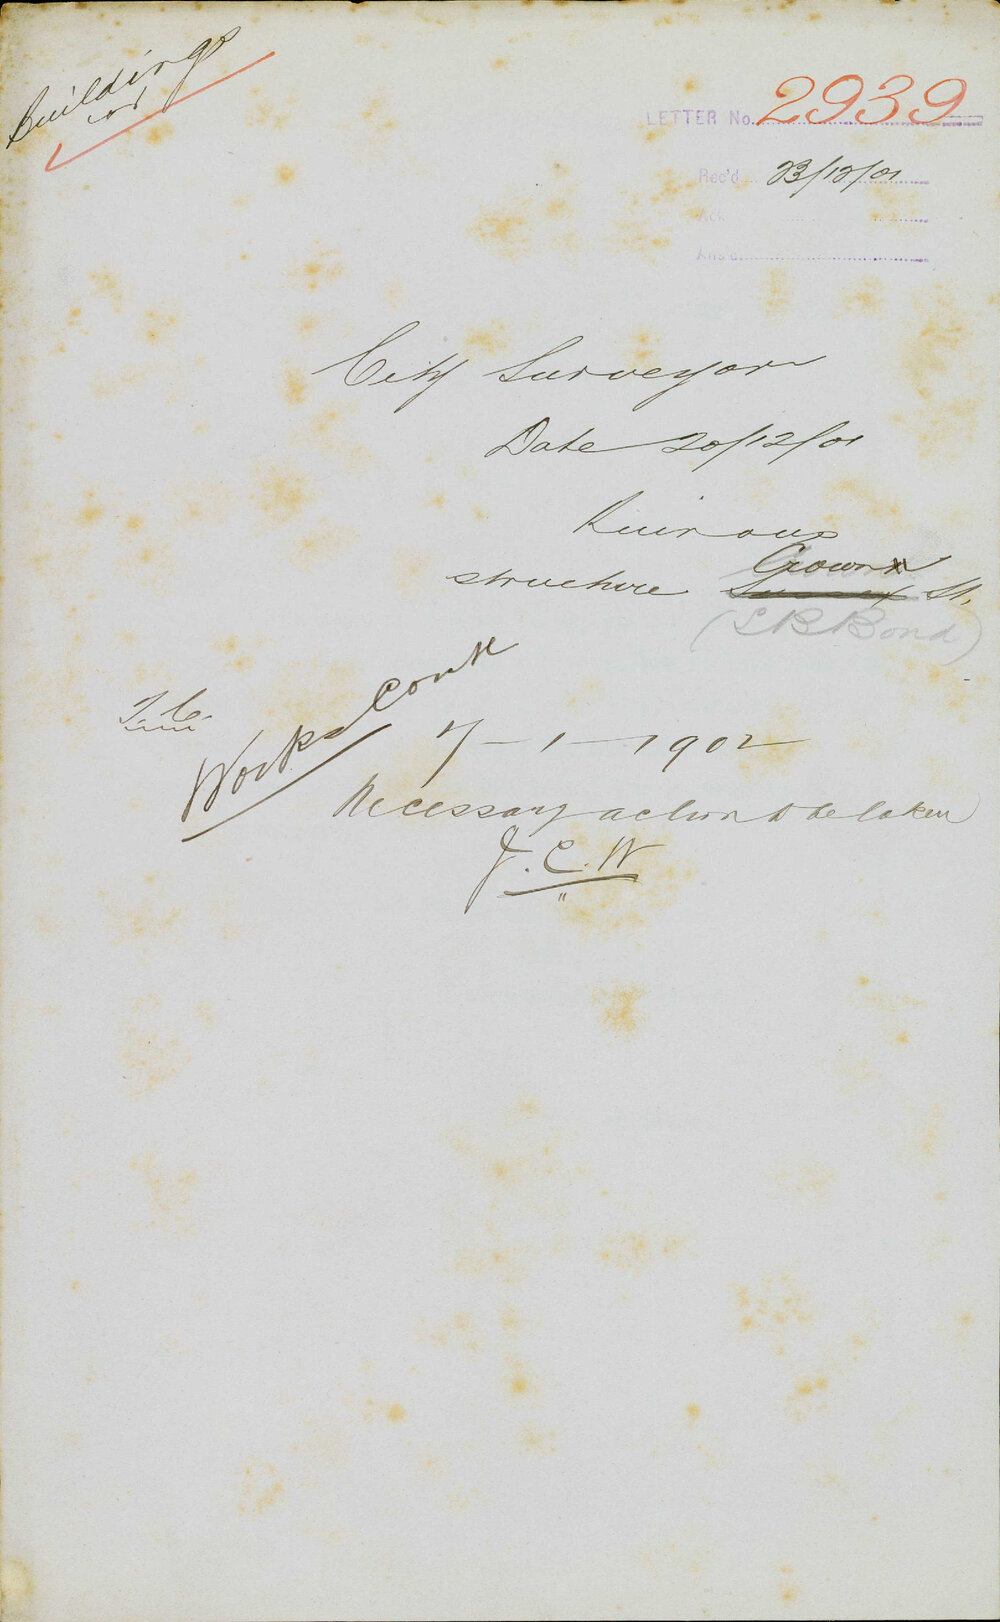 Buildings
LETTER No. 2939
Rec'd 23/12/01
Ack
Ans'd
City Surveyor
Date 20/12/01
Ruinous
Crown
structure Sussex St.
(L B Bond)
T.C.
Works Comtt
7-1-1902
Necessary action to be taken
J.C.W